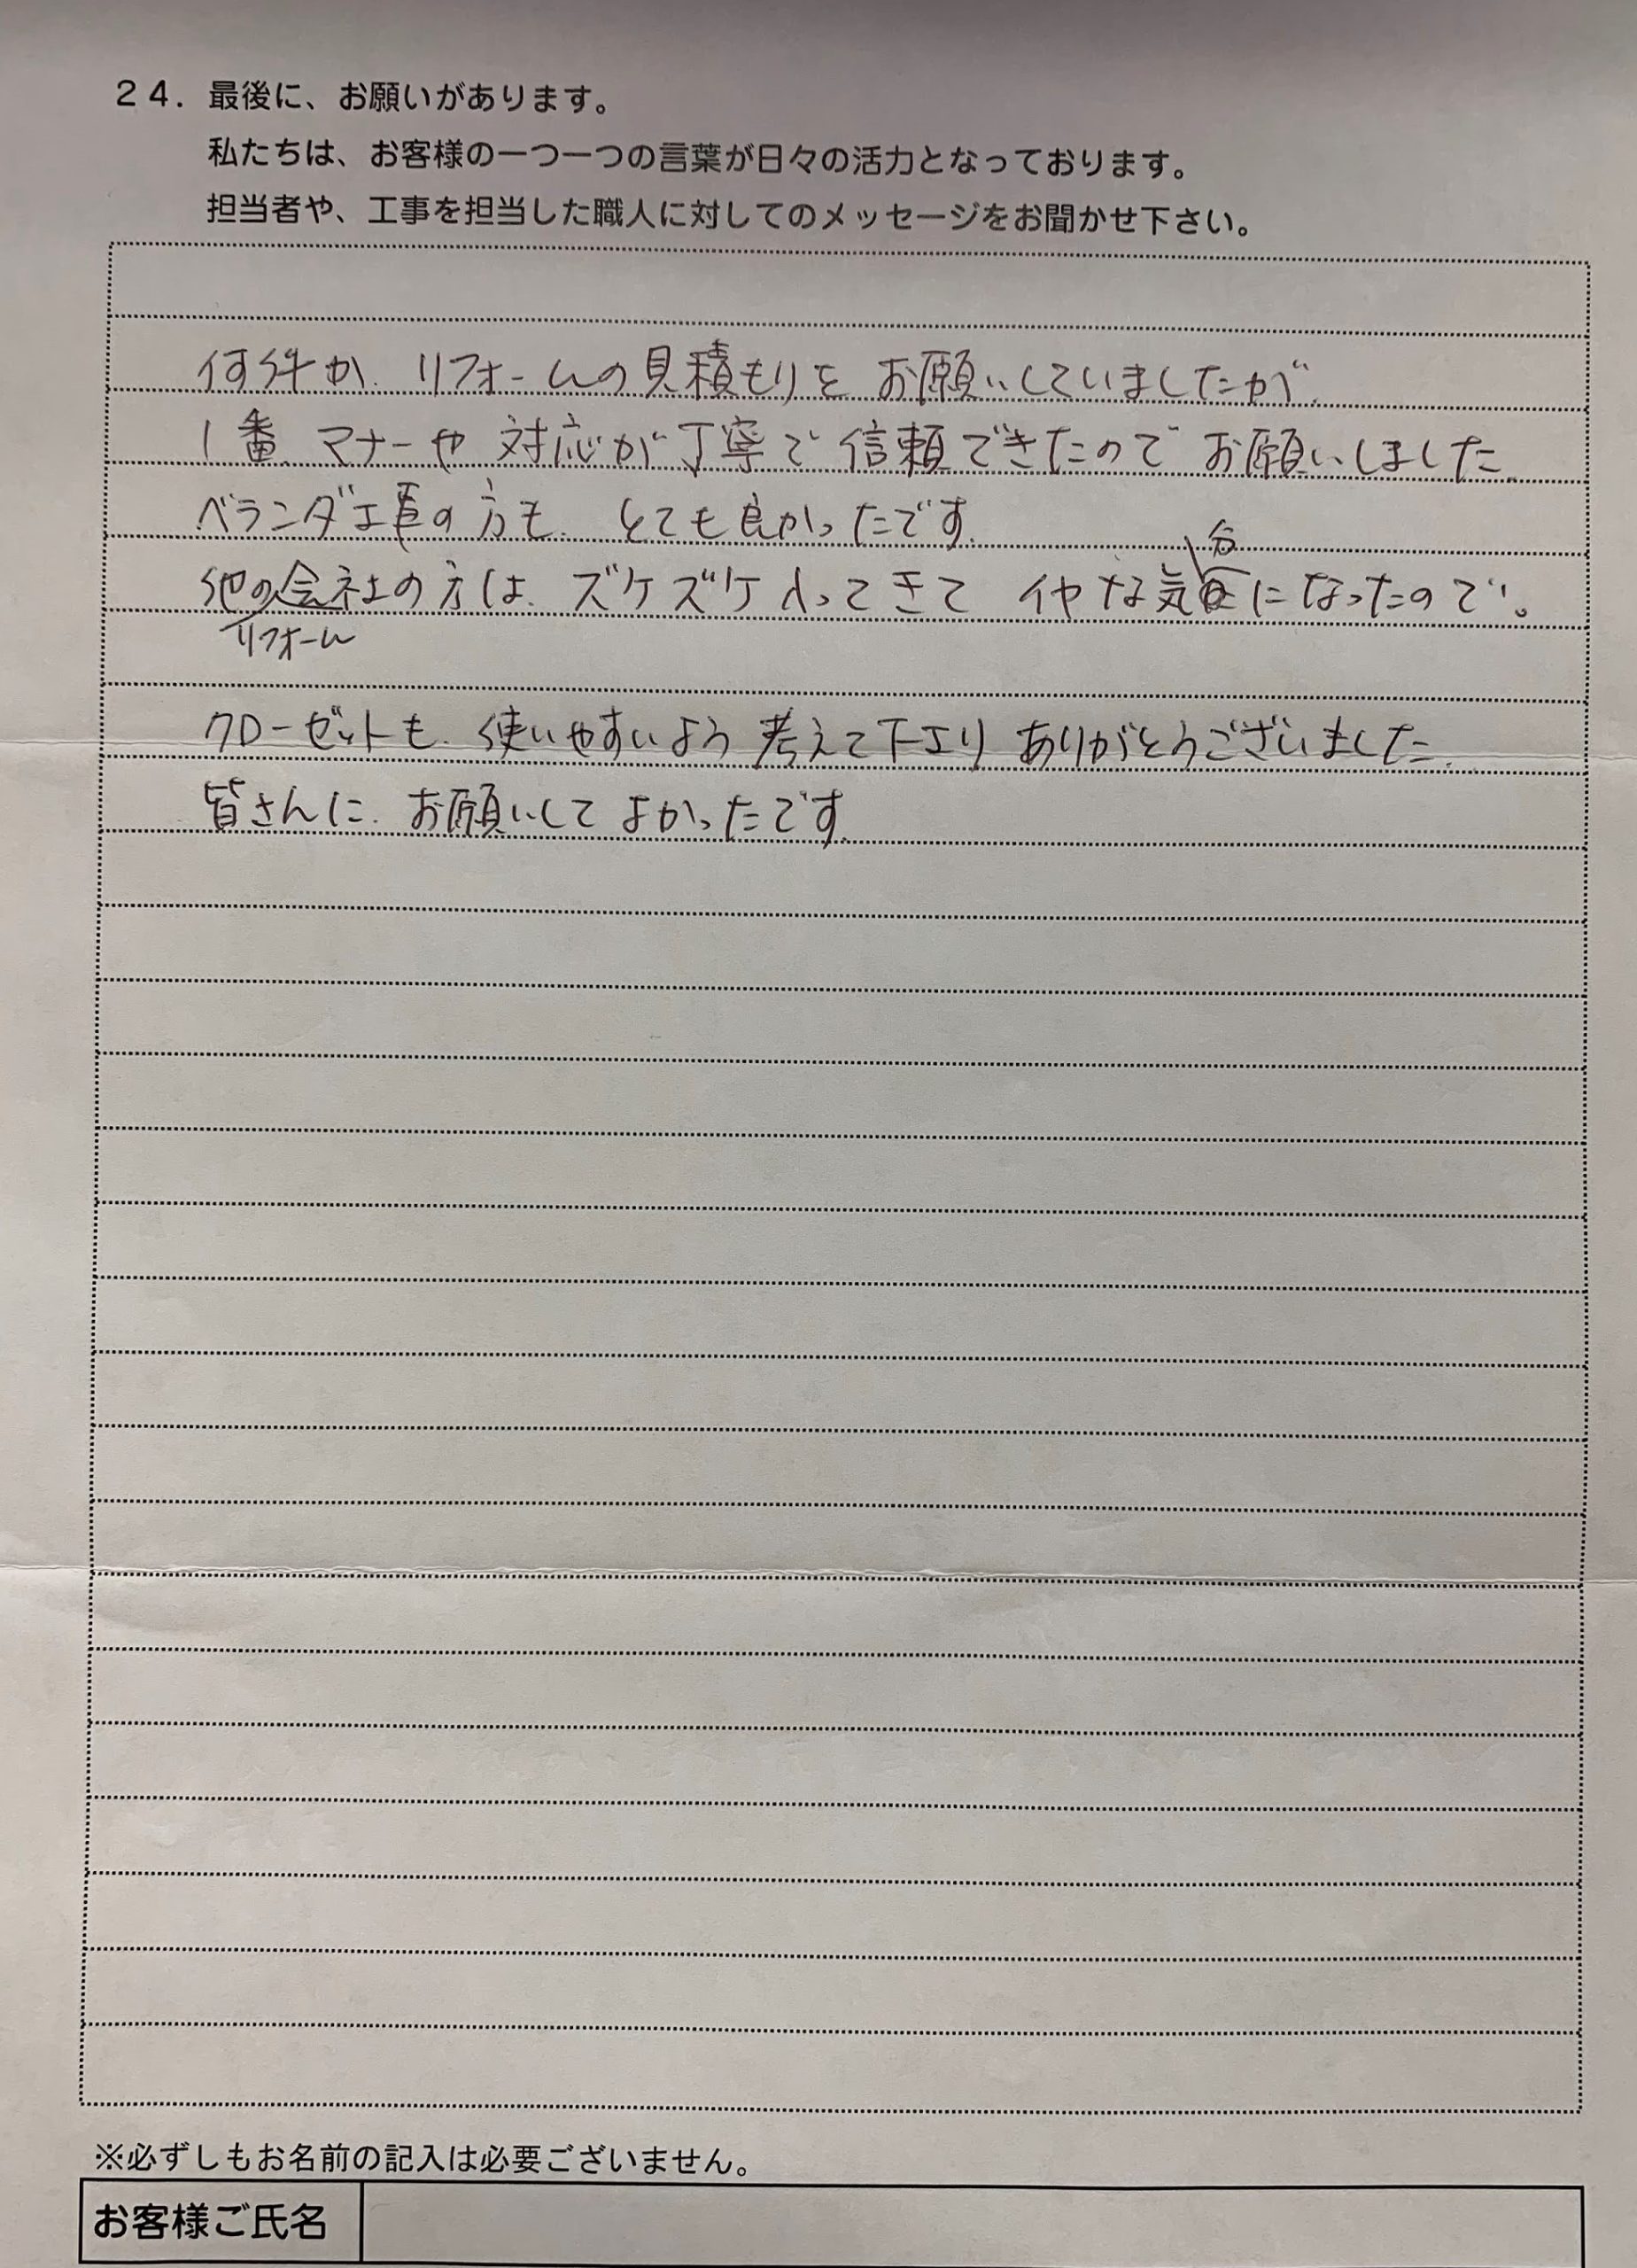 ２４．最後に、お願いがあります。
私たちは、お客様の一つ一つの言葉が日々の活力となっております。
担当者や、工事を担当した職人に対してのメッセージをお聞かせ下さい。
何件か、リフォームの見積もりをお願いしていましたが、
1番、マナーや対応が丁寧で信頼できたのでお願いしました。
ベランダ工事の方も、とても良かったです。
分
他の会社の方は、ズケズケ入ってきてイヤな気になったので。
リフォーム
クローゼットも、使いやすいよう考えて下さりありがとうございました。
皆さんに、お願いしてよかったです。
※必ずしもお名前の記入は必要ございません。
お客様ご氏名